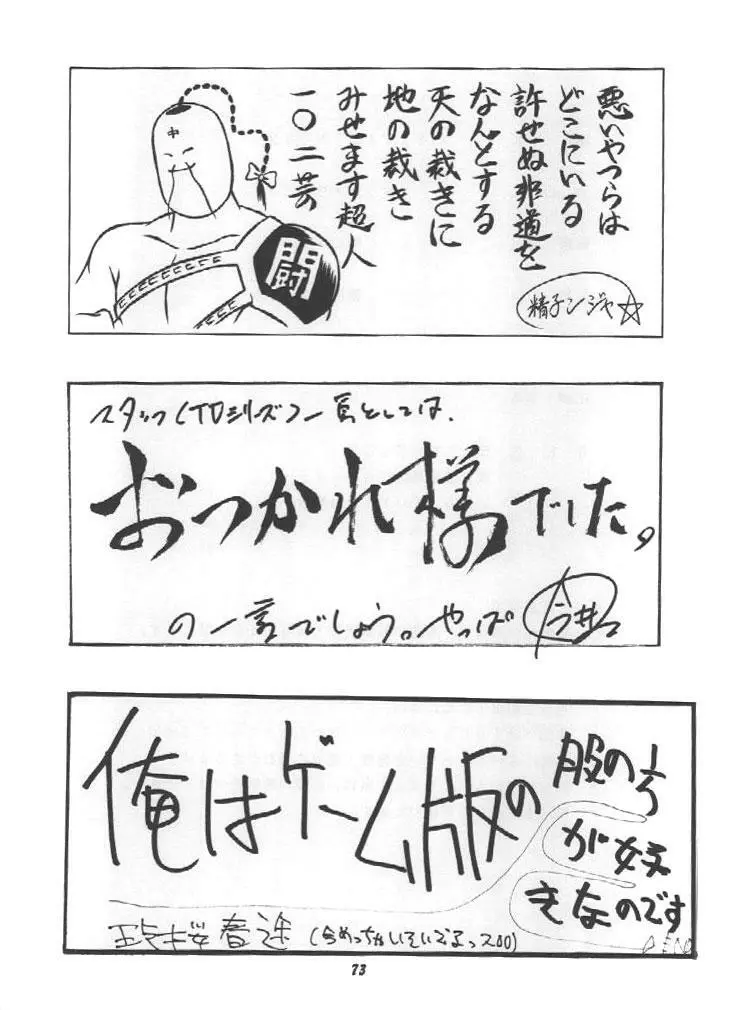 悪いやつらは
どこにいる
許せぬ非道を
なんとする
天の裁きに
地の裁き
みせます超人
一〇二芸
精子ンジャ☆
中
闘
スタッフ(TDシリーズ)一員としては、
おつかれ様でした。
の一言でしょう。やっぱ
今井
俺はゲーム版の
股の
が好
きなのです
桜春途(今めっちゃいそいでるっスOO)
73